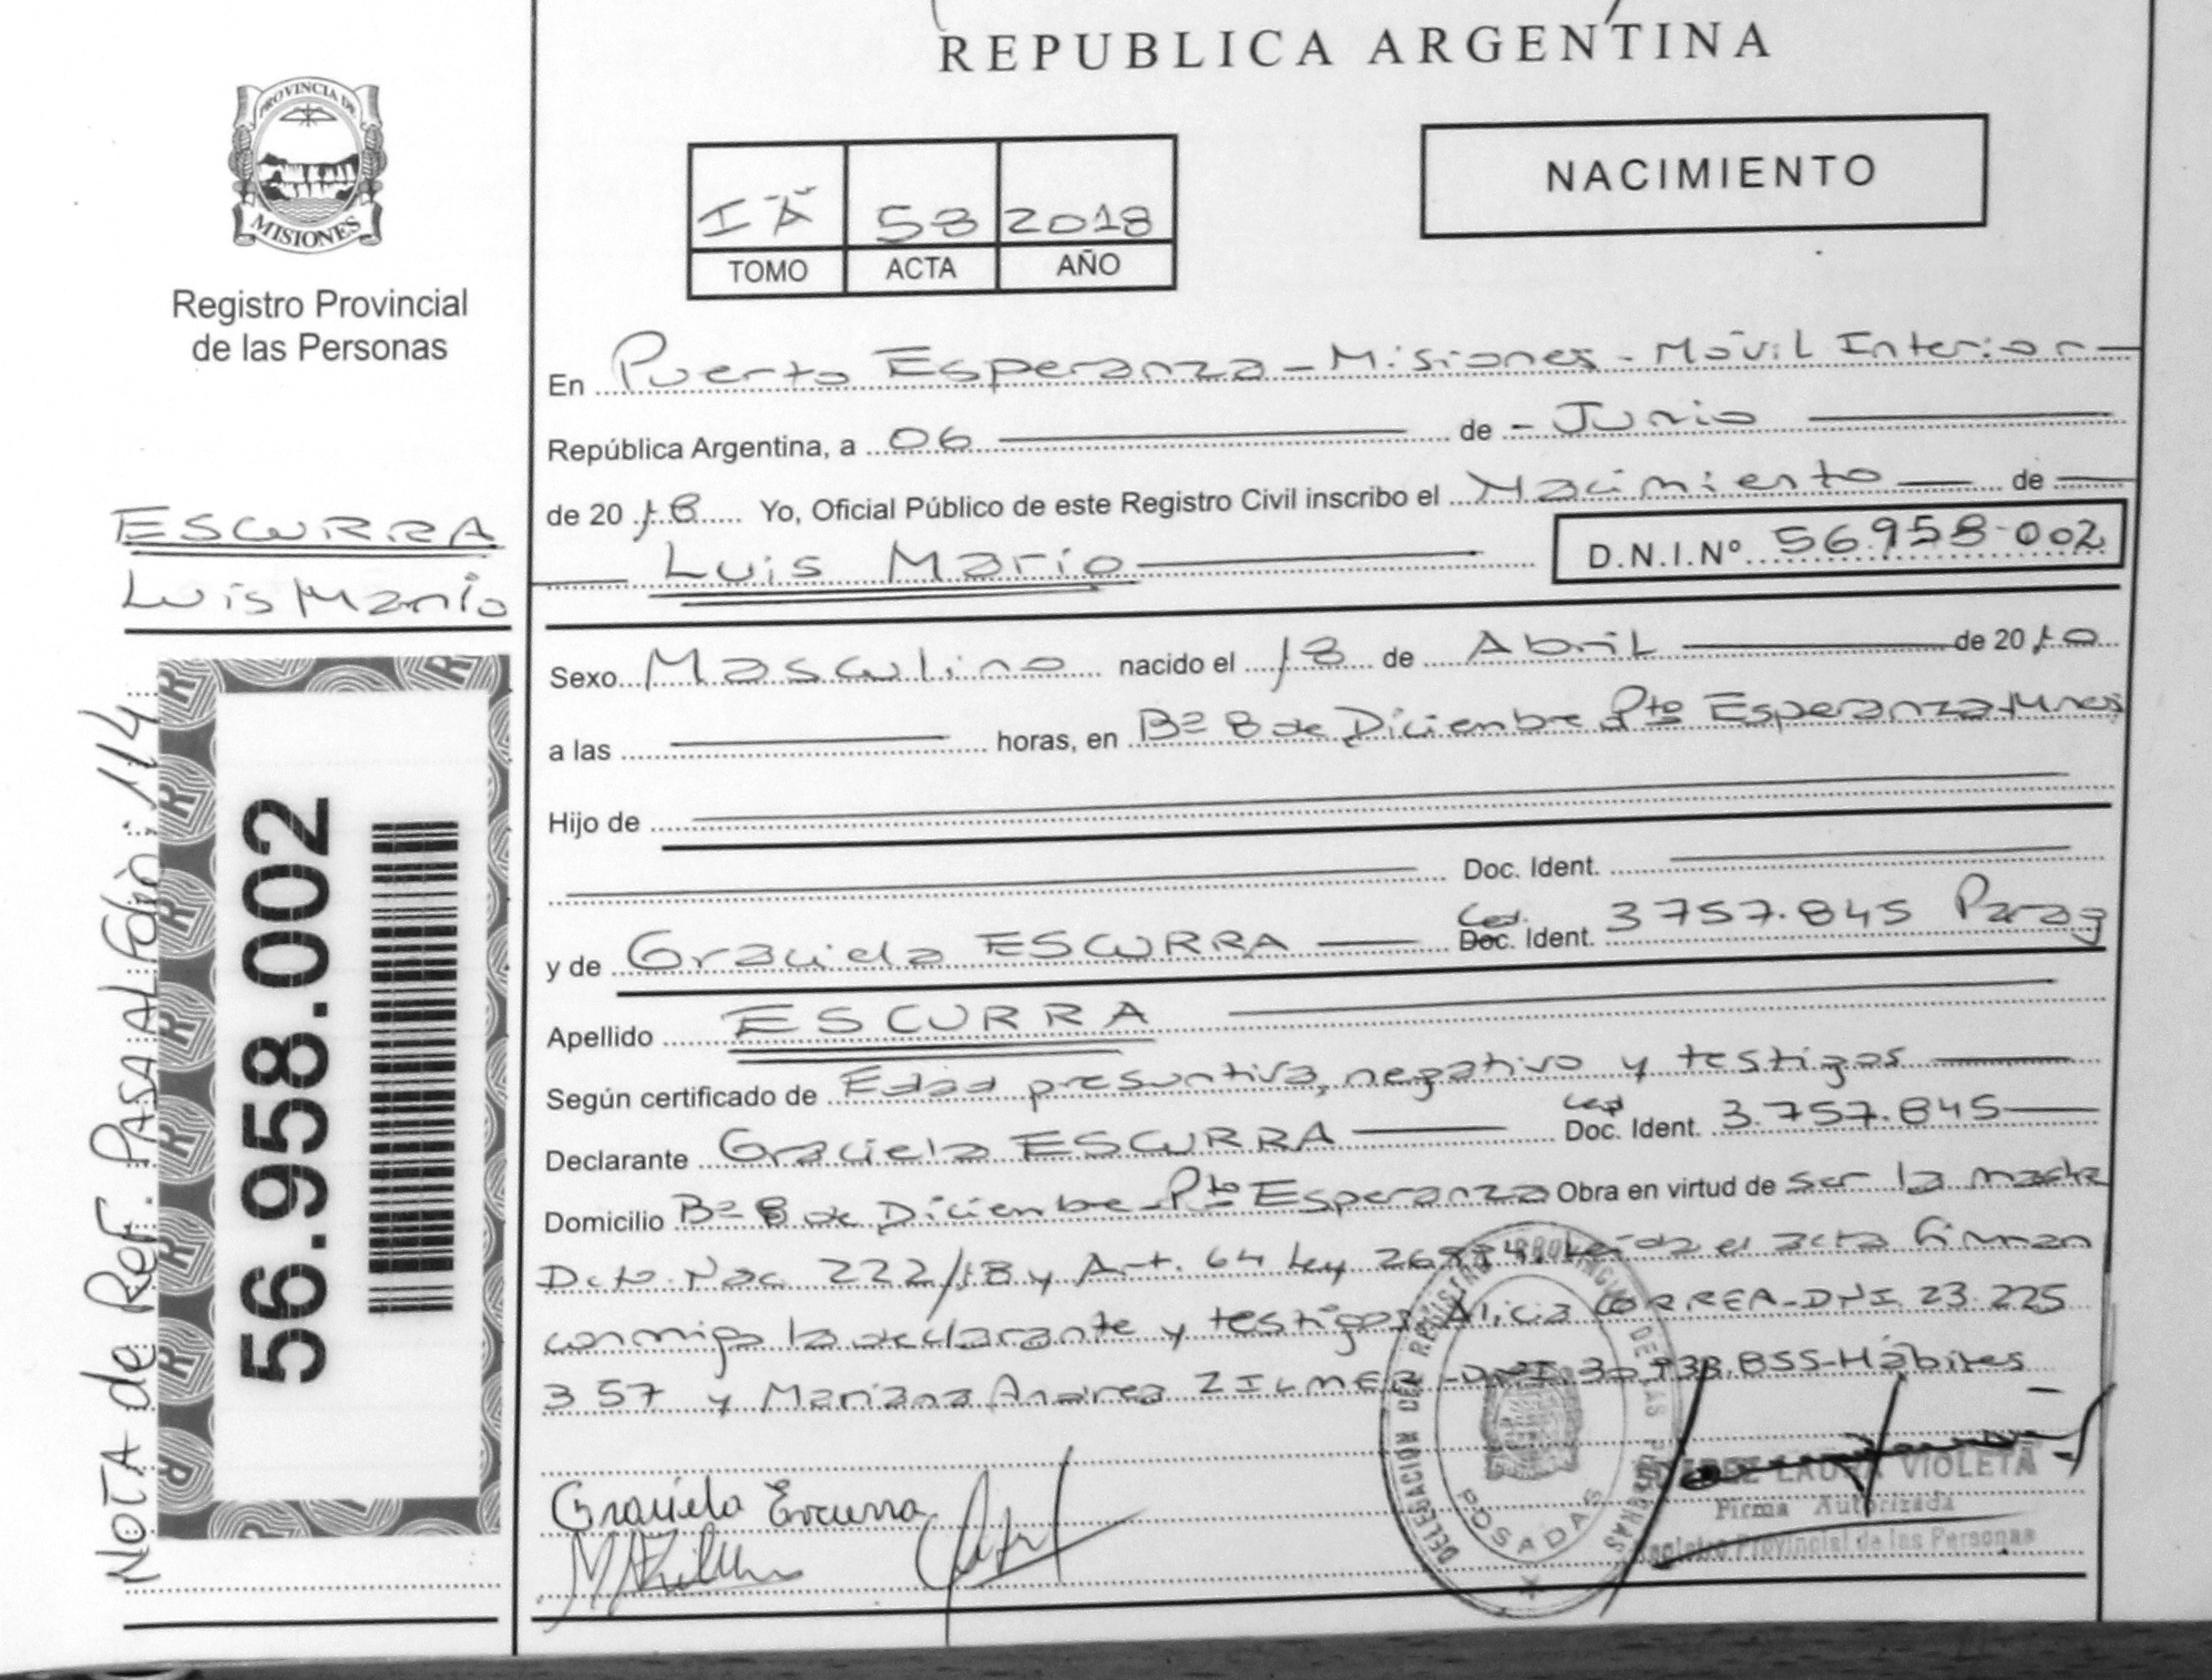 REPUBLICA ARGENTINA
PROVINCIA DE
MISIONES
Registro Provincial
de las Personas
I "A" 58 2018
TOMO ACTA AÑO
NACIMIENTO
ESCURRA
Luis Mario
Nota de Ref. PASA AL Folio: 114
56.958.002
En Puerto Esperanza - Misiones - Móvil Interior
República Argentina, a 06 de - Junio
de 2018 Yo, Oficial Público de este Registro Civil inscribo el Nacimiento de
Luis Mario D.N.I.Nº 56.958.002
Sexo Masculino nacido el 18 de Abril de 2010
a las horas, en Bº 8 de Diciembre Pto Esperanza Mnes
Hijo de
Doc. Ident.
y de Graciela ESCURRA Ced. Doc. Ident. 3757.845 Parag
Apellido ESCURRA
Según certificado de Edad presuntiva, negativo y testigos
Declarante Graciela ESCURRA Ced Doc. Ident. 3.757.845
Domicilio Bº 8 de Diciembre Pto Esperanza Obra en virtud de ser la madre
Dcto. Nac 222/18 y Art. 64 Ley 26994. Leída el acta firman
conmigo la declarante y testigos Alicia CORREA - DNI 23.225
357 y Mariana Andrea ZILMER - DNI. 30.938.855 - Hábiles
Graciela Escurra
DELEGACION DEL REGISTRO PROVINCIAL DE LAS PERSONAS
POSADAS
LAURA VIOLETA
Firma Autorizada
Registro Provincial de las Personas